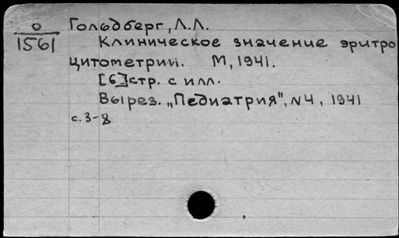 О
1561
Гольдберг, Л.Л.
Клиническое значение эритро
цитометрии. М, 1941.
[6]стр. с илл.
Вырез. „Педиатрия", N4, 1941
с. 3-8